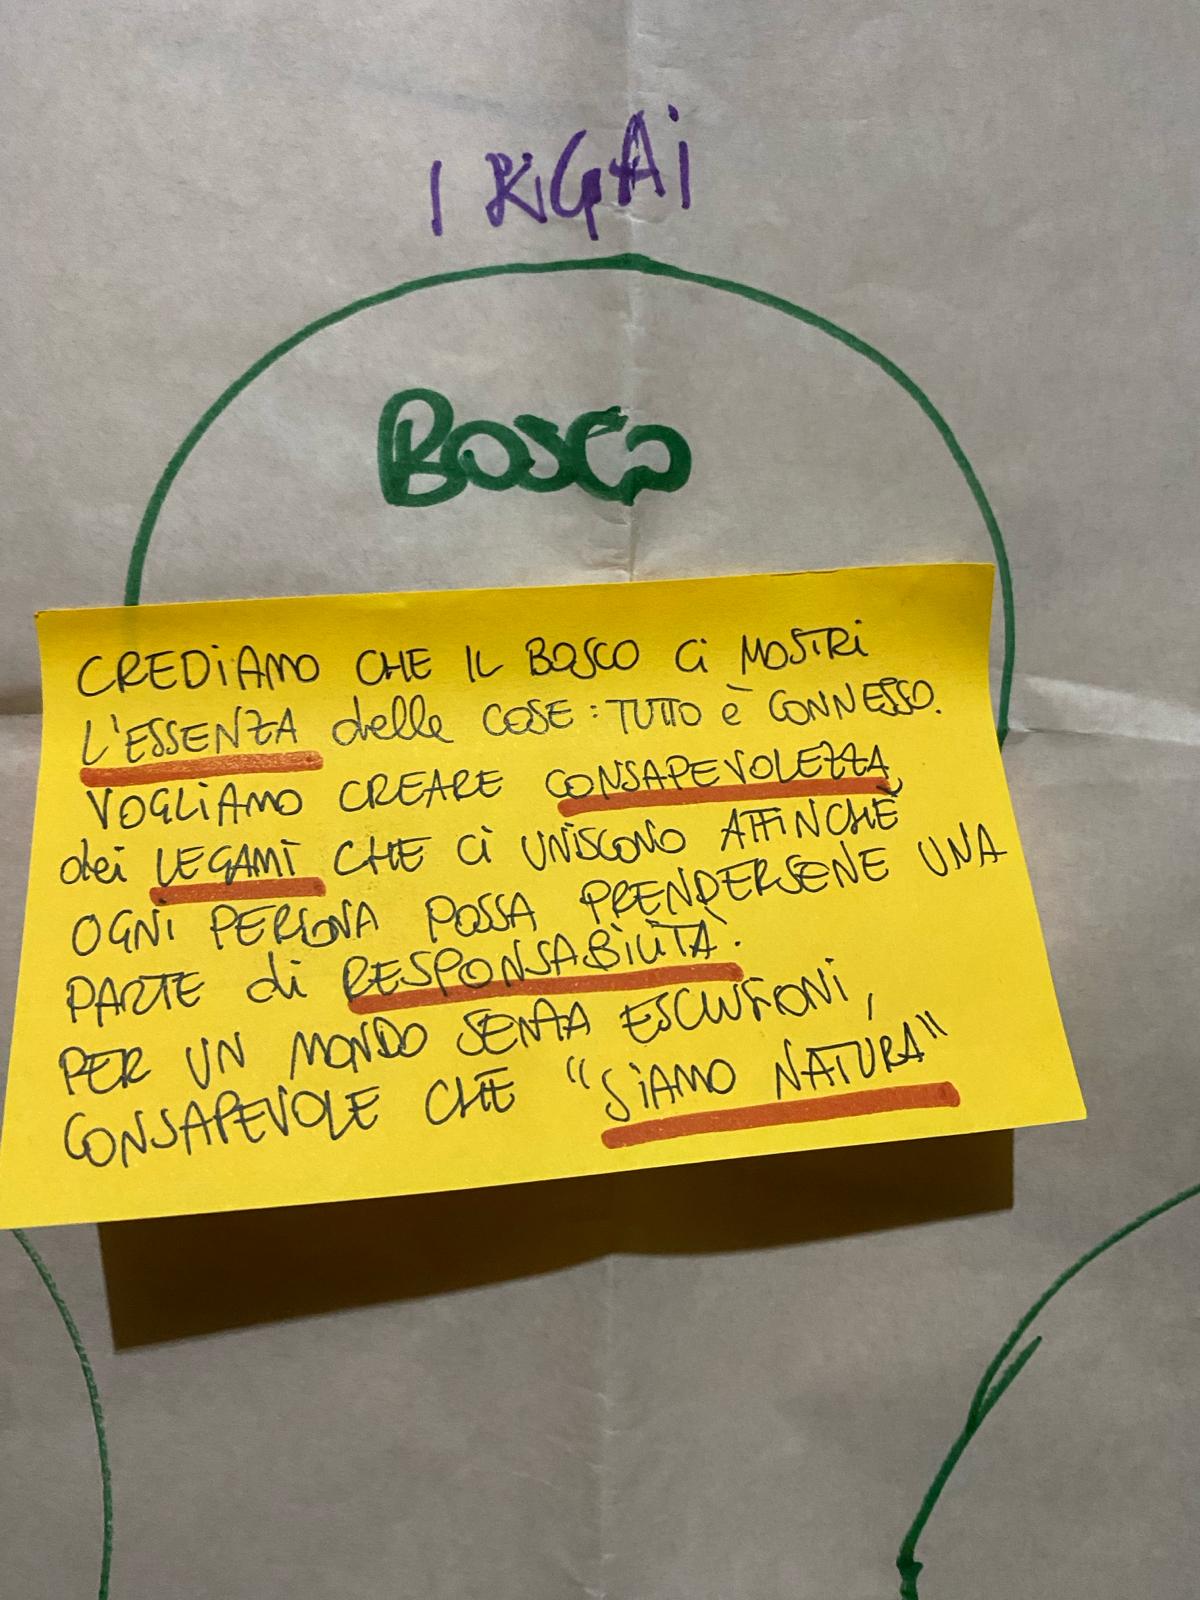 IKiGAi
BOSCO
CREDiAMO CHE IL BOSCO Ci MOSTRi
L'ESSENZA delle COSE: TUTTO è CONNESSO.
VOGLiAMO CREARE CONSAPEVOLEZZA
dei LEGAMi CHE Ci UNISCONO AFFINCHÈ
OGNi PERSONA POSSA PRENDERSENE UNA
PARTE di RESPONSABiLiTÀ.
PER UN MONDO SENZA ESCLUSIONi,
CONSAPEVOLE CHE "SiAMO NATURA"